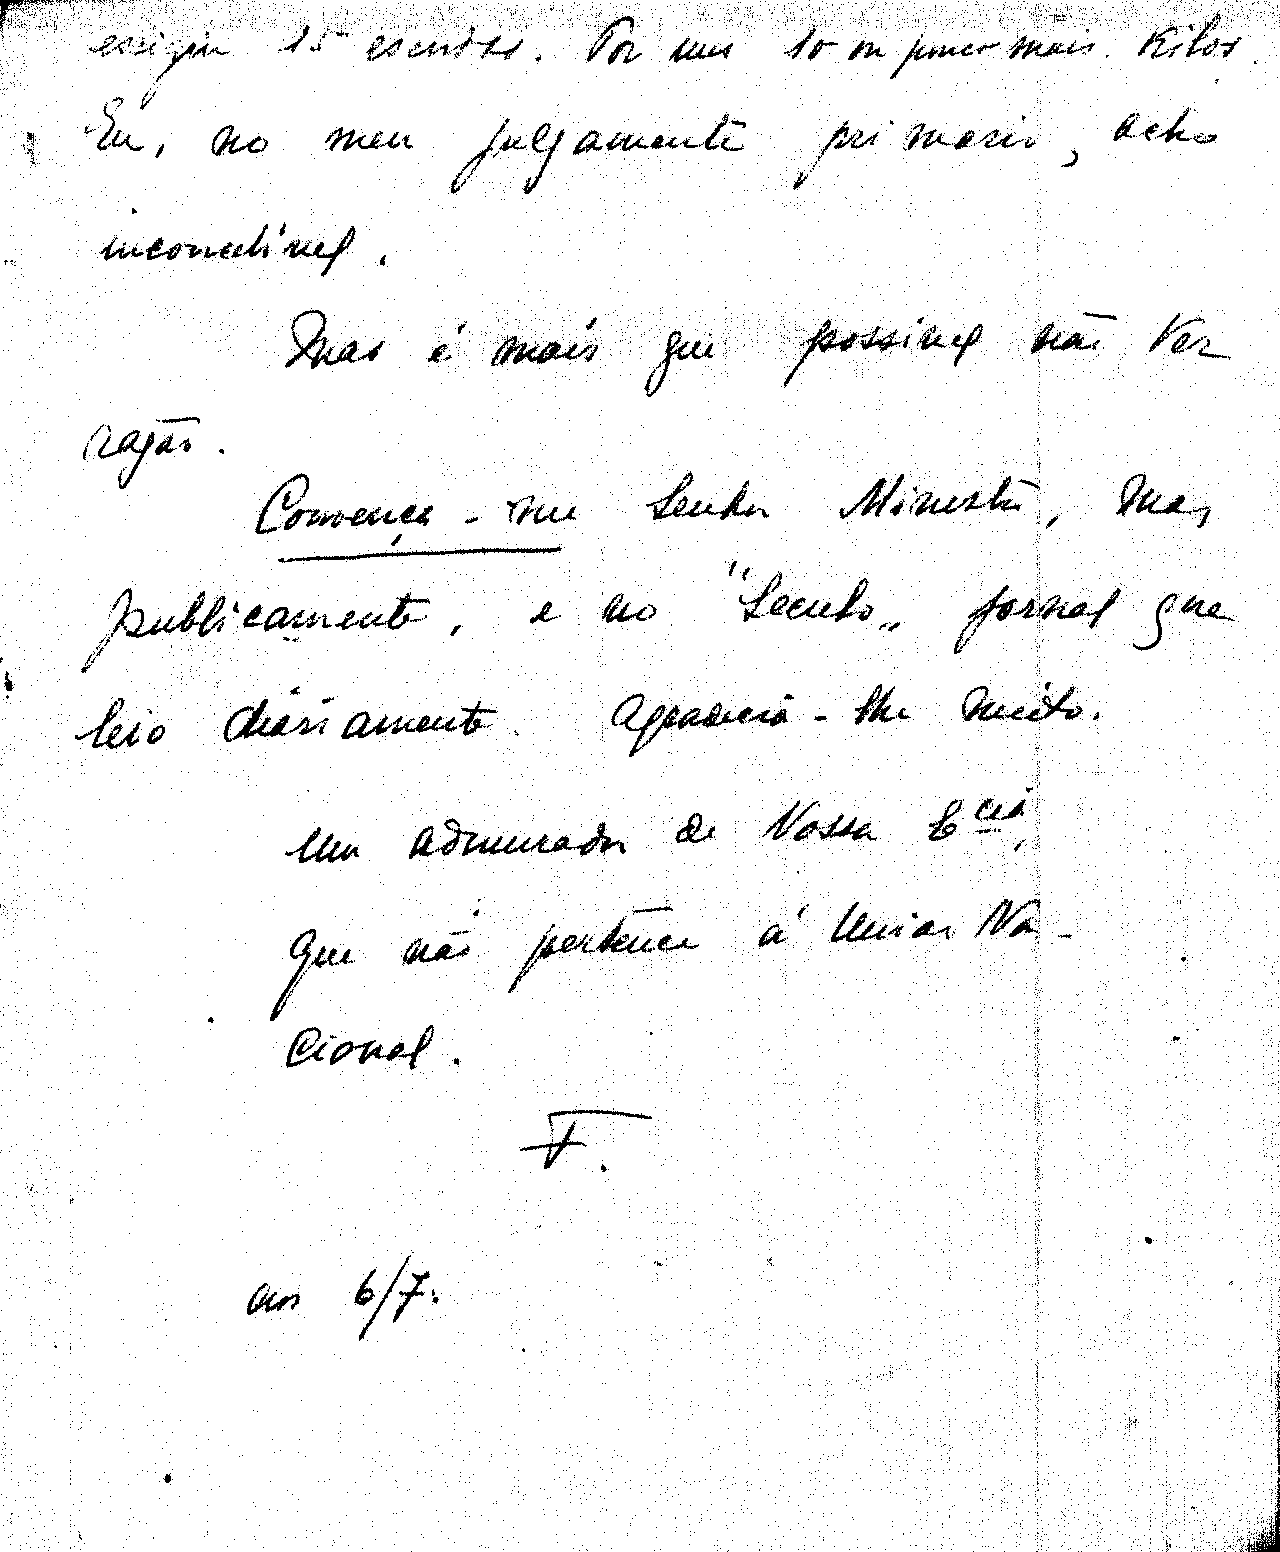 exigiu 15 escudos. Por uns 10 ou pouco mais Kilos.
Eu, no meu julgamento primario, acho
incorrétivel.
Mas é mais que possivel não ter
razão.
Convença-me Senhor Ministro, mas
publicamente, e no "Seculo„ jornal que
leio diáriamente. Agradecia-lhe muito.
Um admirador de Vossa Ecia.
que não pertence á União Na-
cional.
F.
aos 6/7.